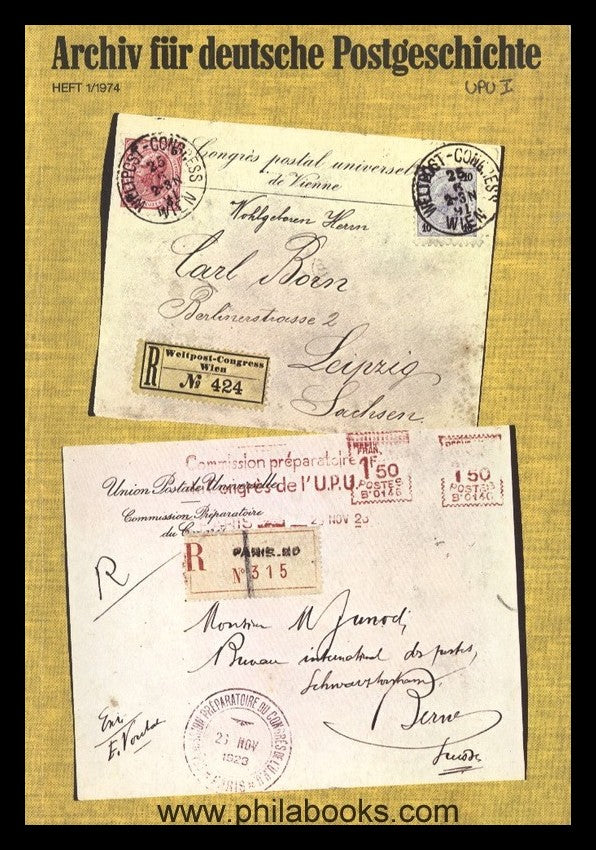 Archiv für deutsche Postgeschichte
HEFT 1/1974
UPU I
Congrès postal universel
de Vienne
WELTPOST-CONGRESS
25
2-3 N
91
WIEN
WELTPOST-CONGRESS
25
2-3 N
91
WIEN
10
Wohlgeboren Herrn
Carl Born
Berlinerstrasse 2
Leipzig
Sachsen
R
Weltpost-Congress
Wien
No 424
Commission préparatoire
Congrès de l'U.P.U.
Union Postale Universelle
Commission Préparatoire
du
FRAN.
1F50
POSTES
B'0146
1 50
POSTES
B'0146
NOV 28
R
R
PARIS
No 315
Monsieur M Junod,
Bureau international des postes,
Berne
Suisse
PRÉPARATOIRE DU CONGRÈS DE L'U.P.U.
NOV
PARIS
E.
www.philabooks.com